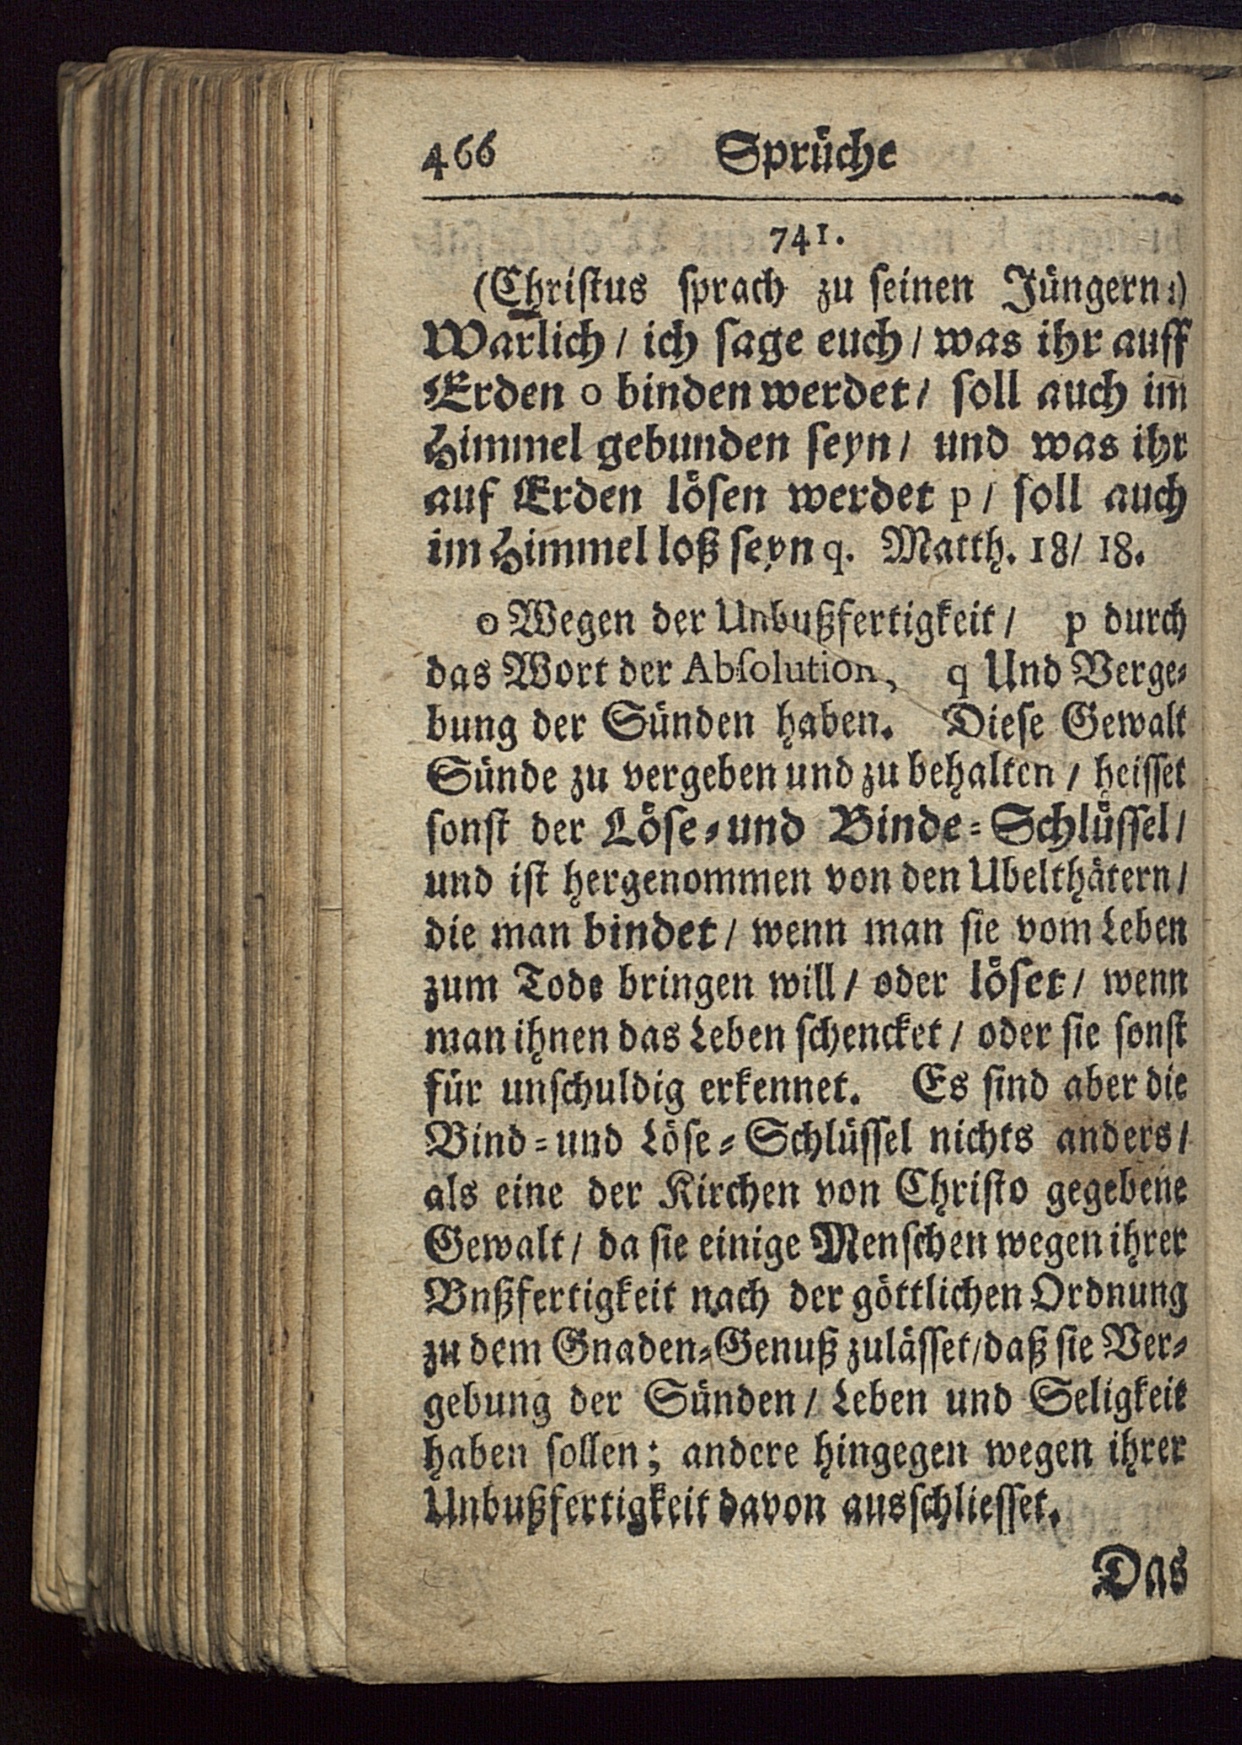 466 Sprüche
741.
(Christus sprach zu seinen Jüngern:)
Warlich / ich sage euch / was ihr auff
Erden o binden werdet / soll auch im
Himmel gebunden seyn / und was ihr
auf Erden lösen werdet p / soll auch
im Himmel loß seyn q. Matth. 18/ 18.
o Wegen der Unbußfertigkeit / p durch
das Wort der Absolution, q Und Verge⸗
bung der Sünden haben. Diese Gewalt
Sünde zu vergeben und zu behalten / heisset
sonst der Löse⸗und Binde⸗Schlüssel /
und ist hergenommen von den Ubelthätern /
die man bindet / wenn man sie vom Leben
zum Tode bringen will / oder löset / wenn
man ihnen das Leben schencket / oder sie sonst
für unschuldig erkennet. Es sind aber die
Bind⸗und Löse⸗Schlüssel nichts anders /
als eine der Kirchen von Christo gegebene
Gewalt / da sie einige Menschen wegen ihrer
Bnßfertigkeit nach der göttlichen Ordnung
zu dem Gnaden⸗Genuß zulässet / daß sie Ver⸗
gebung der Sünden / Leben und Seligkeit
haben sollen; andere hingegen wegen ihrer
Unbußfertigkeit davon ausschliesset.
Das